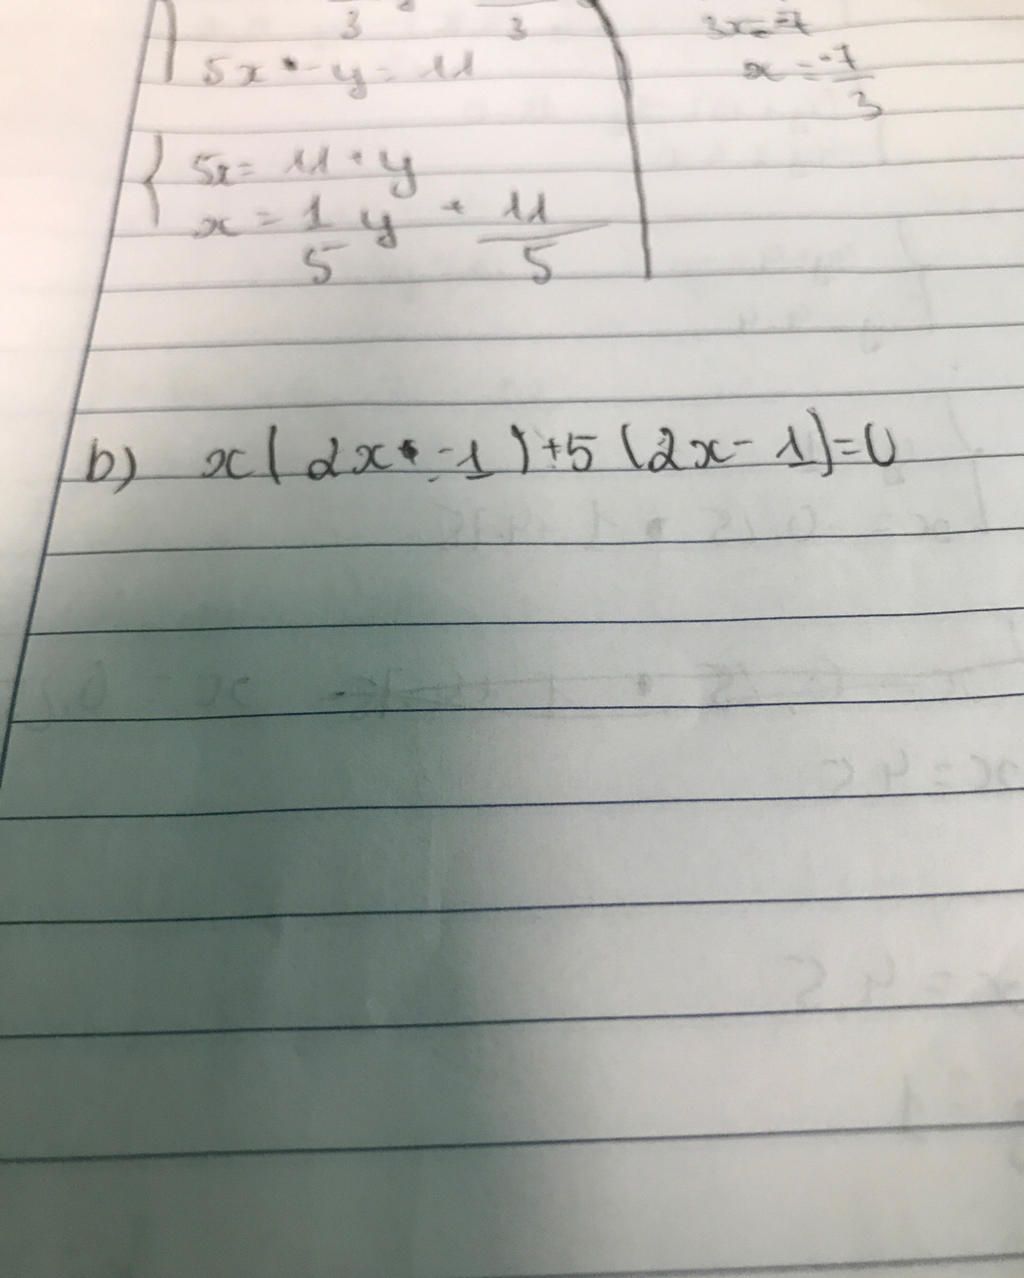 3 3
5x - y = 11
3x = -7
x = -7/3
5x = 11 + y
x = 1/5 y + 11/5
b) x(2x - 1) + 5(2x - 1) = 0